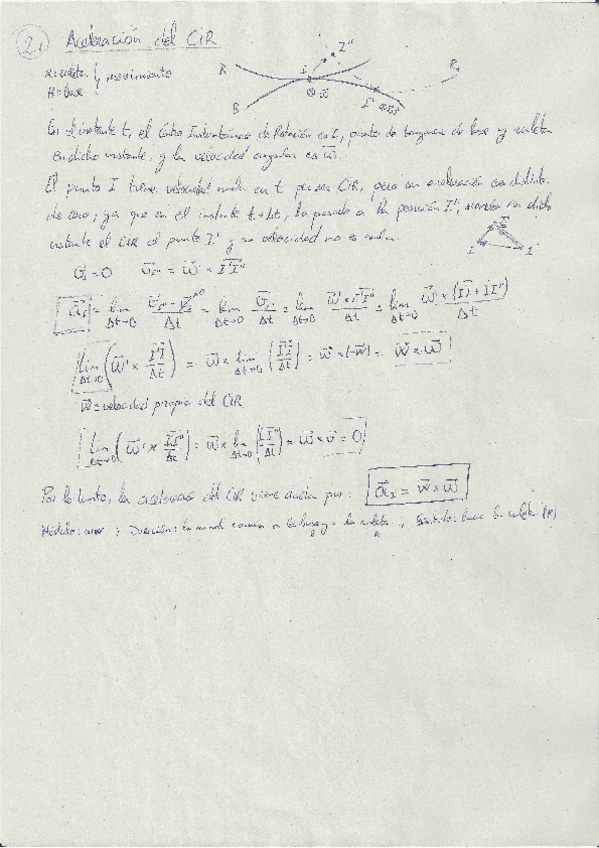 2.1 Aceleración del CIR
R = ruleta } movimiento
B = base
R I I'' R
B ω I' ω'
En el instante t, el Centro Instantáneo de Rotación es I, punto de tangencia de base y ruleta
en dicho instante, y la velocidad angular es ω⃗.
El punto I tiene velocidad nula en t por ser CIR, pero su aceleración es distinta
de cero; ya que en el instante t+Δt, ha pasado a la posición I'', siendo en dicho
instante el CIR el punto I' y su velocidad no es nula.
I'' I I'
v⃗_I = 0 v⃗_I'' = ω⃗' × I'I''
a⃗_I = lim Δt→0 (v⃗_I'' - v⃗_I)/Δt = lim Δt→0 v⃗_I''/Δt = lim Δt→0 (ω⃗' × I'I'')/Δt = lim Δt→0 (ω⃗' × (I'I + II''))/Δt
lim Δt→0 (ω⃗' × I'I/Δt) = ω⃗ × lim Δt→0 (I'I/Δt) = ω⃗ × (-w⃗) = w⃗ × ω⃗
w⃗ = velocidad propia del CIR
lim Δt→0 (ω⃗' × II''/Δt) = ω⃗ × lim Δt→0 (II''/Δt) = ω⃗ × v⃗ = 0
Por lo tanto, la aceleración del CIR viene dada por: a⃗_I = w⃗ × ω⃗
Módulo: ωw ; Dirección: la normal común a la base y a la ruleta ; Sentido: hacia la ruleta (R)
B R